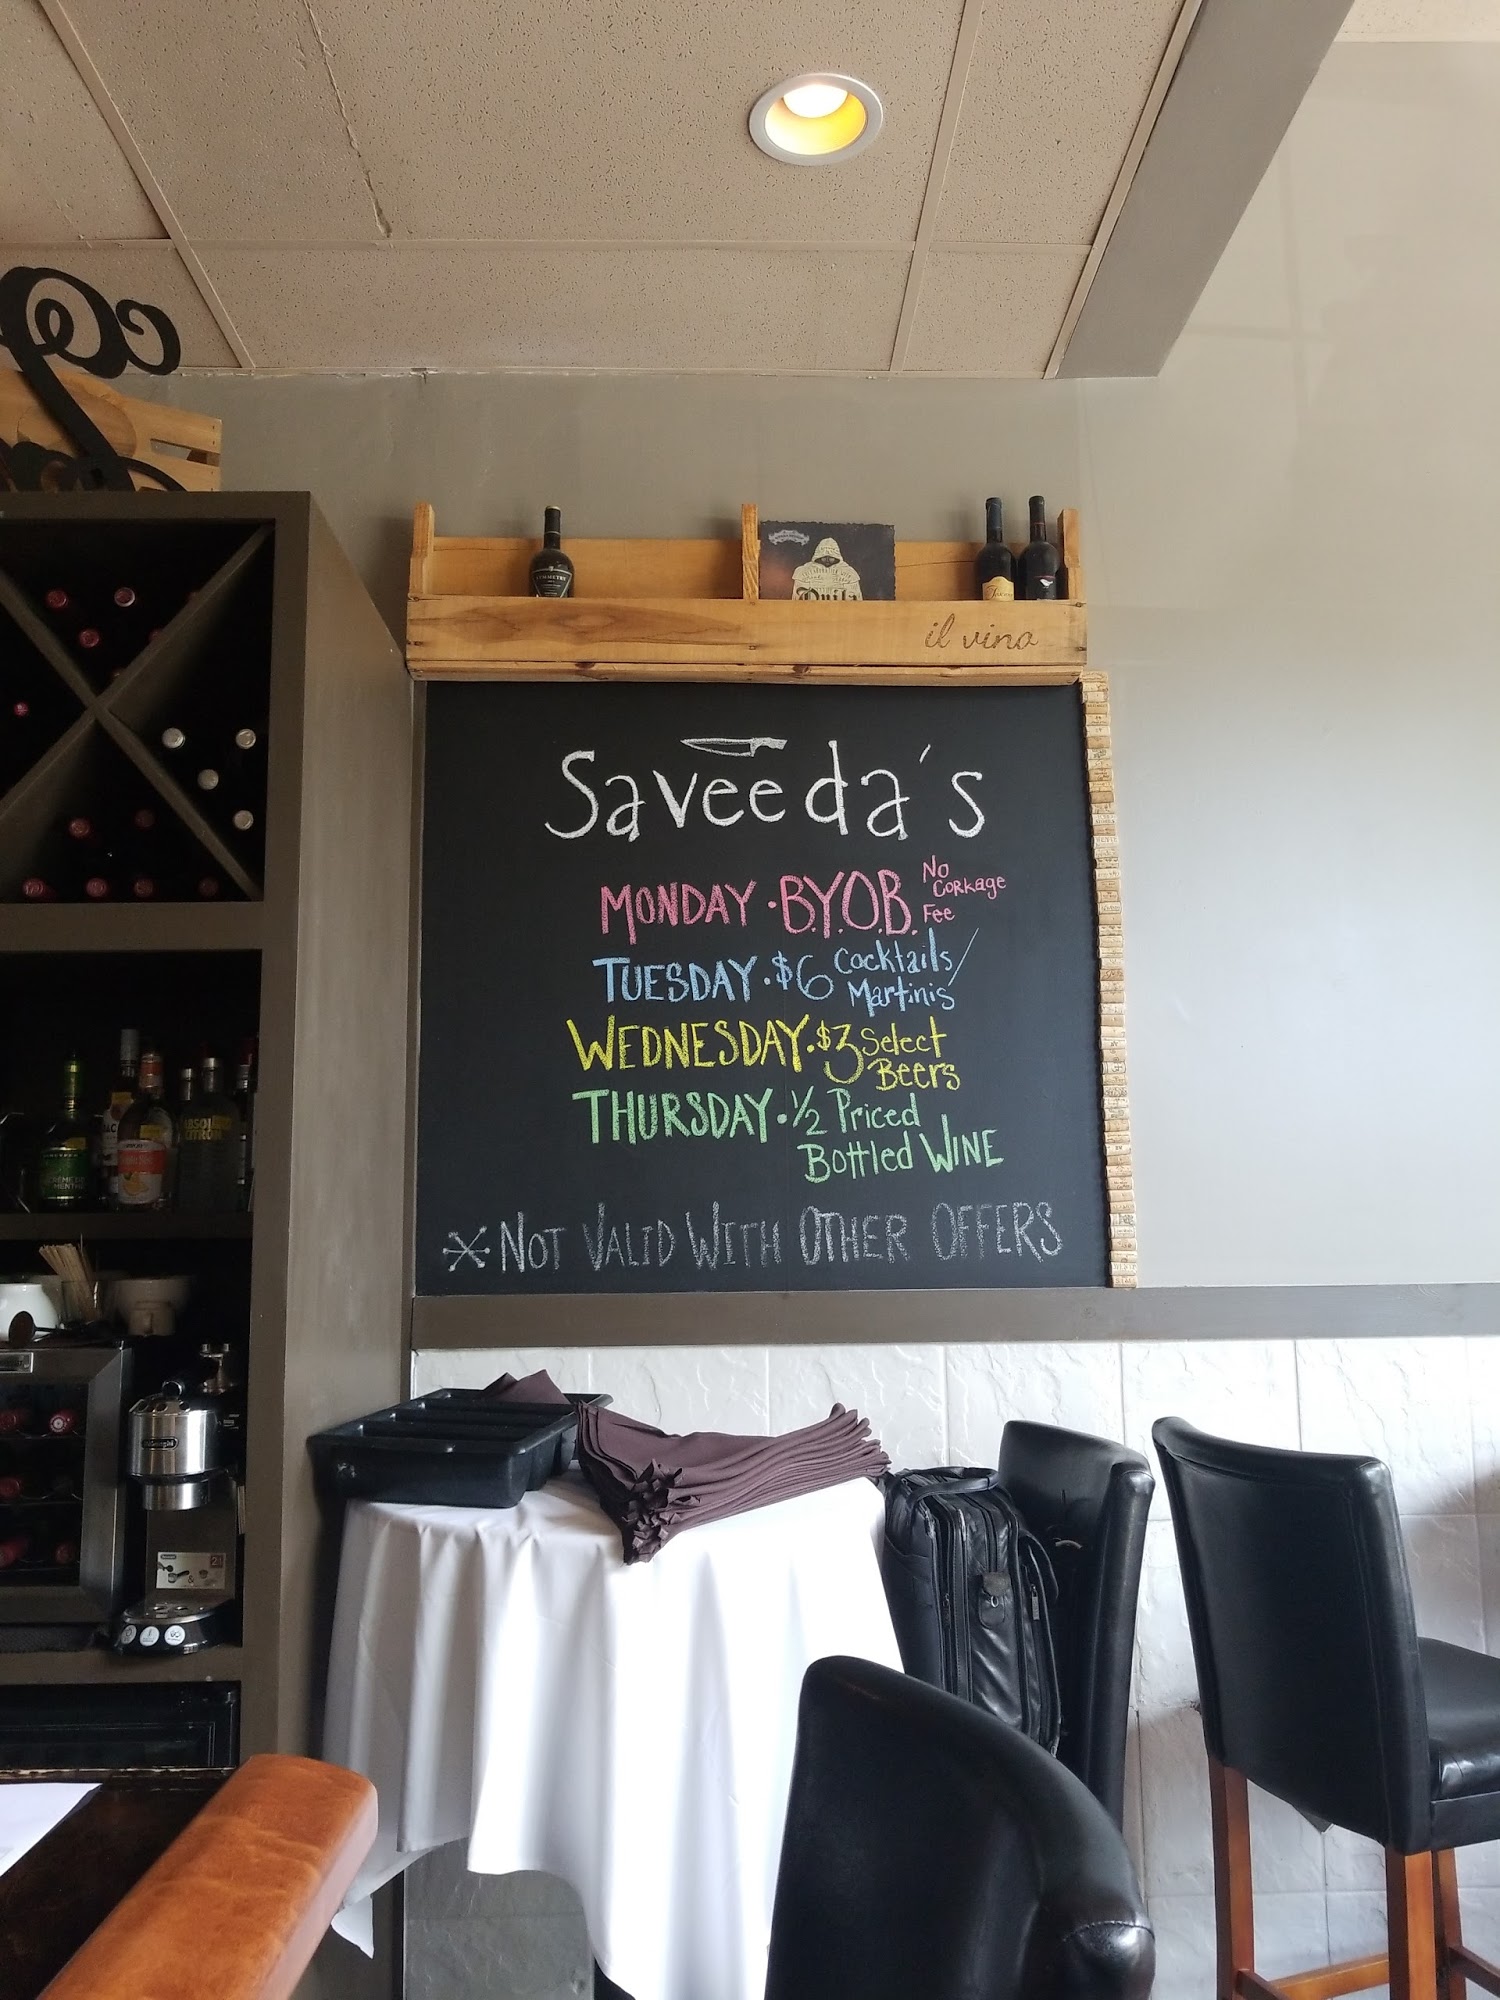 il vino
Saveeda's
MONDAY · B.Y.O.B. No Corkage Fee
TUESDAY · $6 Cocktails/ Martinis
WEDNESDAY · $3 Select Beers
THURSDAY · 1/2 Priced
Bottled WINE
* NOT VALID WITH OTHER OFFERS
ABSOLUT
CITRON
CRÈME DE
MENTHE
DeLonghi